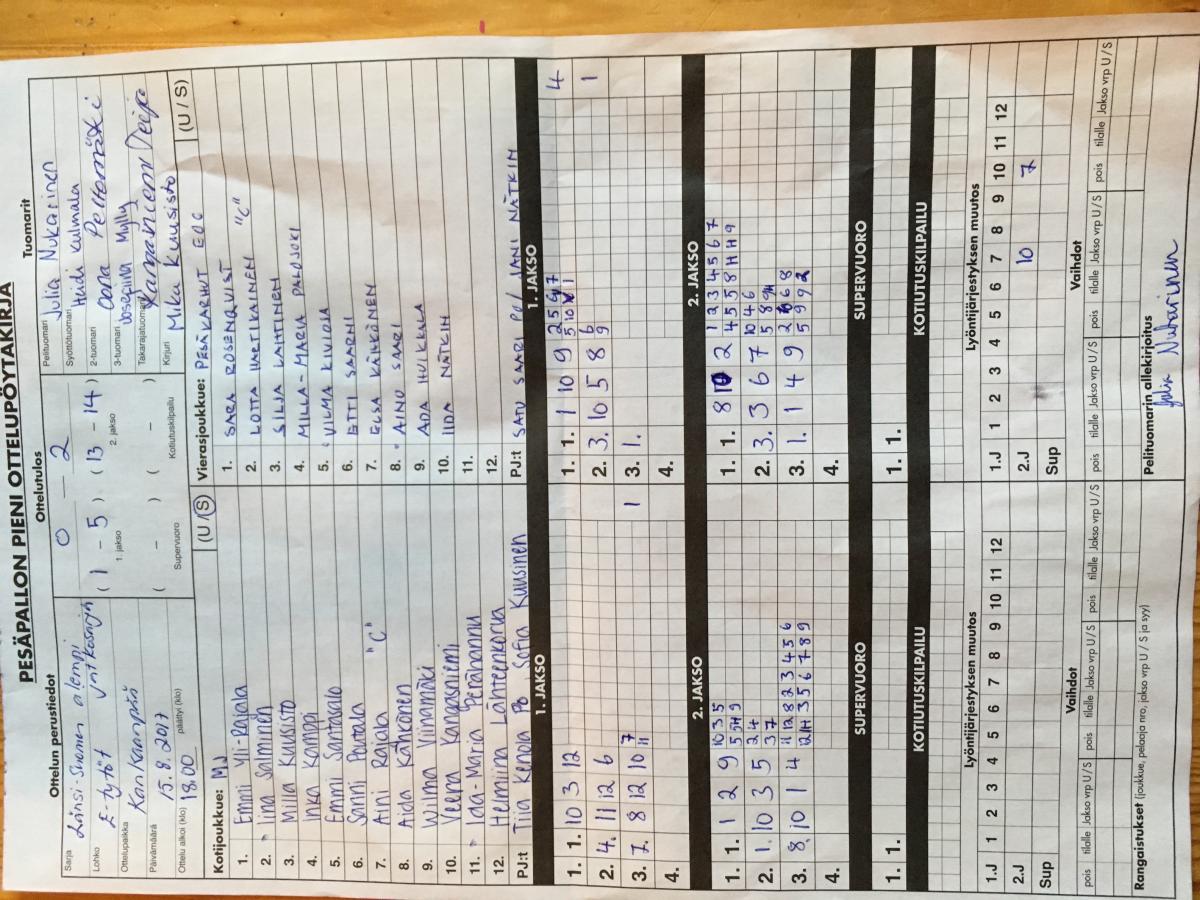 PESÄPALLON PIENI OTTELUPÖYTÄKIRJA
Ottelun perustiedot
Ottelutulos
Tuomarit
Sarja Länsi-Suomen alempi
Lohko E-tytöt
Ottelupaikka Kankaanpää
Päivämäärä 15.8.2017
Ottelu alkoi (klo) 18.00 päättyi (klo)
0 – 2
( 1 – 5 ) ( 13 – 14 )
1. jakso 2. jakso
( – ) ( – )
Supervuoro Kotiutuskilpailu
Pelituomari Julia Nukarinen
Syöttötuomari Heidi Kulmala
2-tuomari Oona Peltomäki
3-tuomari Josepiina Mylly
Takarajatuomari
Kirjuri Mika Kuusisto
Kotijoukkue: MJ (U / S)
1. Emmi Yli-Rajala
2. Iina Salminen
3. Milla Kuusisto
4. Inka Kamppi
5. Emmi Santavalo
6. Sanni Peutala
7. Aini Rajala "C"
8. Aida Kähkönen
9. Wilma Viinamäki
10. Veera Kangasniemi
11. Ida-Maria Perähannu
12. Helmiina Lähteenkorva
PJ:t Tiia Kenola PO Sofia Kuusinen
Vierasjoukkue: PESÄKARHUT E06 (U / S)
1. SARA ROSENQVIST
2. LOTTA MARTIKAINEN "C"
3. SILJA LAITINEN
4. MILLA-MARIA PALOJOKI
5. VILMA KIVIOJA
6. ETTI SAARNI
7. ELSA KÄHKÖNEN
8. AINU SAARI
9. ADA HUIKKALA
10. IIDA NÄTKIN
11.
12.
PJ:t SATU SAARI PO/ JANI NÄTKIN
1. JAKSO
1. 1. 10 3 12
2. 4. 11 12 6
3. 7. 8 12 10 7 11 1
4.
1. JAKSO
1. 1. 1 10 9 4
2. 3. 10 5 8 6 9 1
3. 1.
4.
2. JAKSO
1. 1. 1 2 9 10 3 5
2. 1. 10 3 5 2 4
3 7
3. 8. 10 1 4 11 12 8 2 3 4 5 6
4.
2. JAKSO
1. 1. 8 10 2 1 2 3 4 5 6 7
2. 3. 3 6 7 10 4 6
3. 1. 1 4 9
5 9 9 2
4.
SUPERVUORO
1. 1.
SUPERVUORO
1. 1.
KOTIUTUSKILPAILU
KOTIUTUSKILPAILU
Lyöntijärjestyksen muutos
1.J 1 2 3 4 5 6 7 8 9 10 11 12
2.J
Sup
Lyöntijärjestyksen muutos
1.J 1 2 3 4 5 6 7 8 9 10 11 12
2.J 10 7
Sup
Vaihdot
pois tilalle Jakso vrp U / S pois tilalle Jakso vrp U / S pois tilalle Jakso vrp U / S
Vaihdot
pois tilalle Jakso vrp U / S pois tilalle Jakso vrp U / S pois tilalle Jakso vrp U / S
Rangaistukset (joukkue, pelaaja nro, jakso vrp U / S ja syy)
Pelituomarin allekirjoitus
Julia Nukarinen